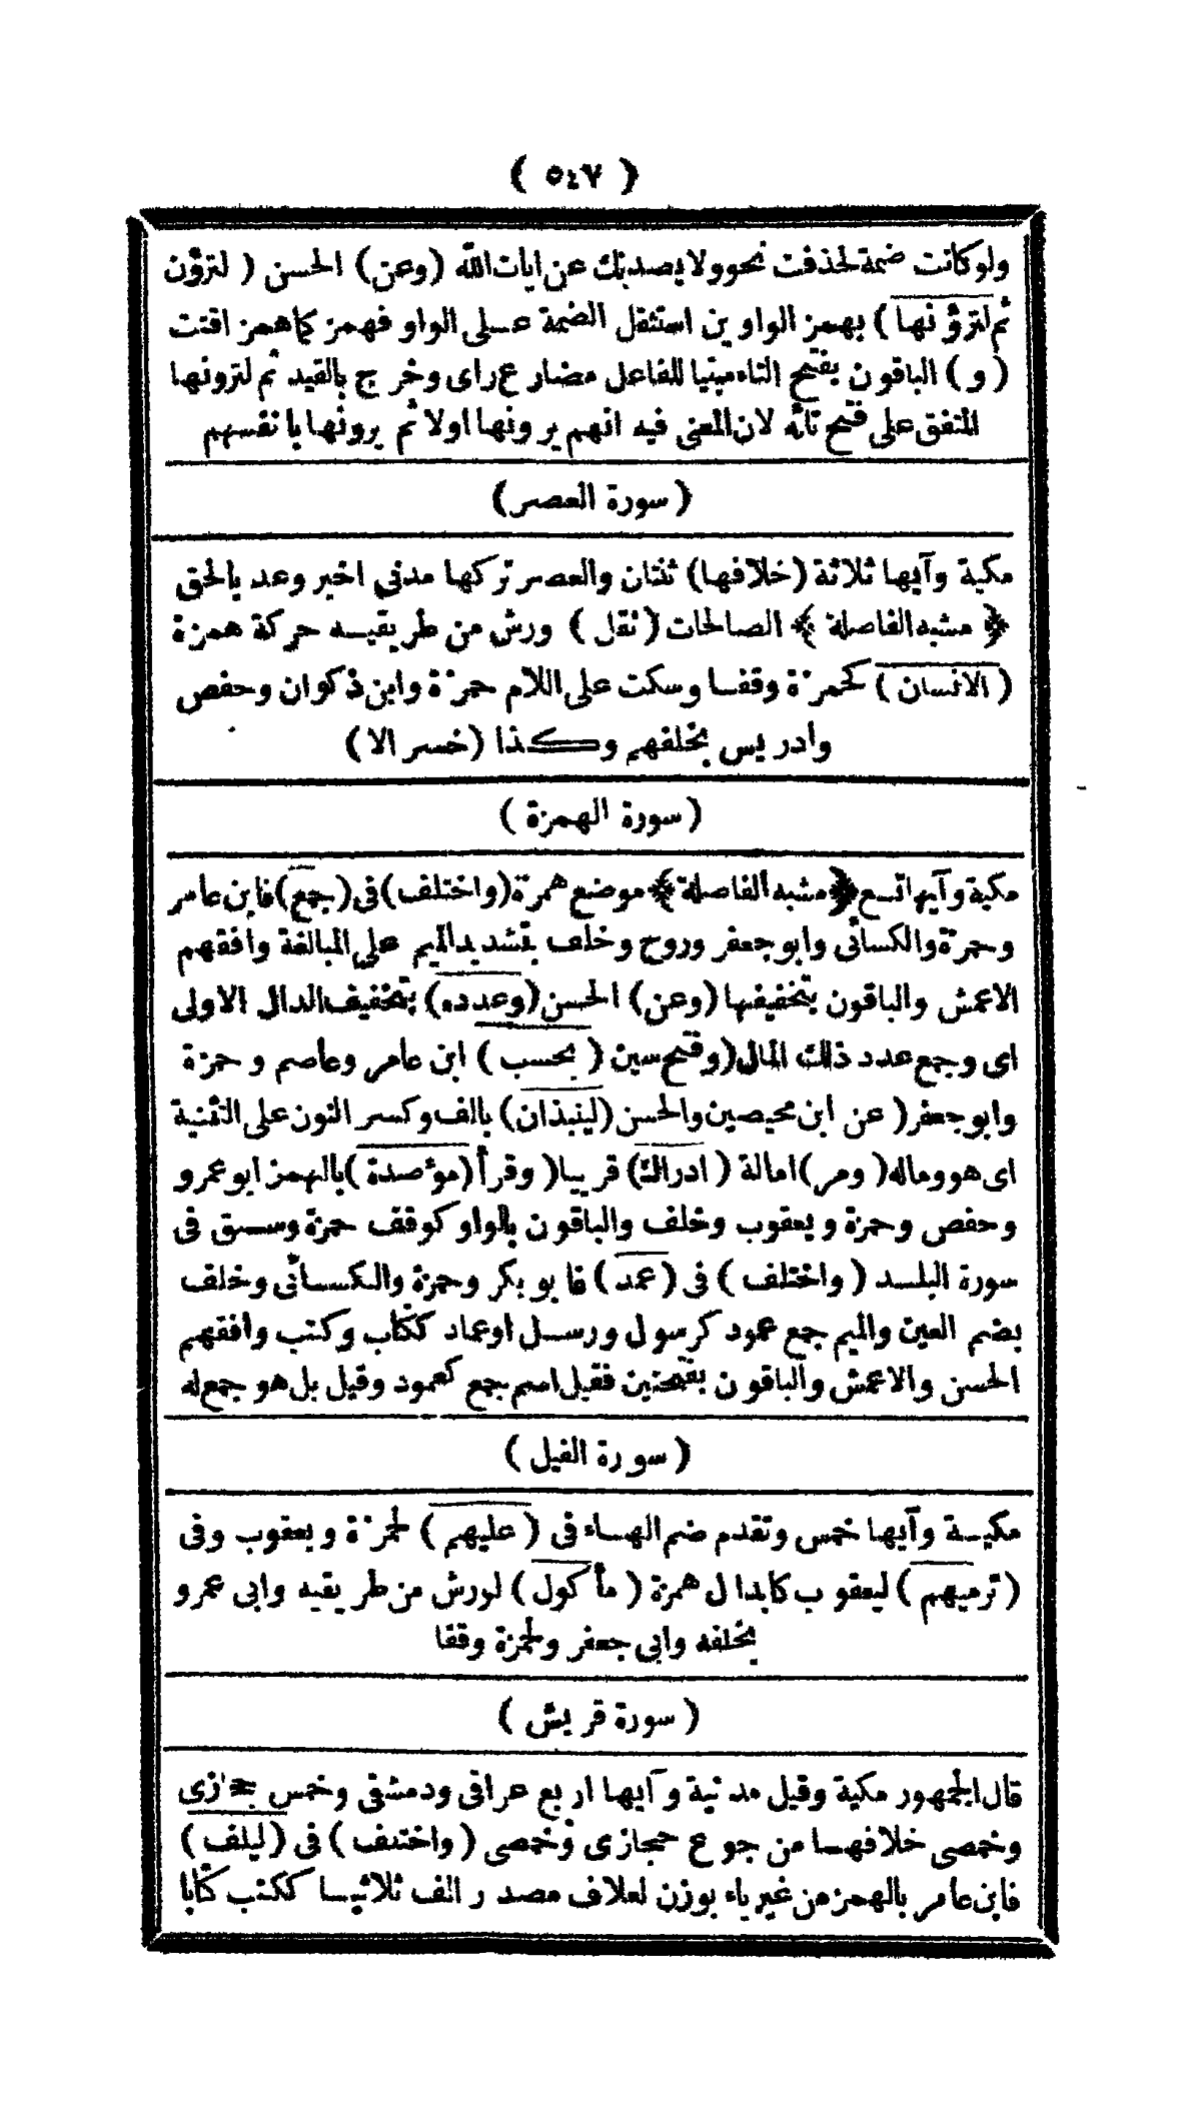 ( ٥٤٧ )
ولو كانت ضمة لحذفت نحو ولا يصدنك عن ايات الله (وعن) الحسن ( لترؤن
ثم لترؤ نها ) بهمز الواو ين استثقل الضمة عـلى الواو فهمز كما همز اقتت
( و ) الباقون بفتح التاء مبنيا للفاعل مضار ع راى وخر ج بالقيد ثم لترونها
المتفق على فتح تائه لان المعنى فيه انهم ير ونها اولا ثم يرونها بانفسهم
( سورة العصر )
مكية وآيها ثلاثة (خلافها) ثنتان والعصر تركها مدني اخير وعد بالحق
﴿ مشبه الفاصلة ﴾ الصالحات ( نقل ) ورش من طر يقيـه حركة همزة
( الانسان ) كحمزة وقفـا وسكت على اللام حمزة وابن ذكوان وحفص
وادر يس بخلفهم وكذا (خسر الا)
( سورة الهمزة )
مكية وآيها تسع ﴿مشبه الفاصلة﴾ موضع همزة (واختلف) فى (جمع) فابن عامر
وحمزة والكسائى وابو جعفر وروح وخلف بتشديد الميم على المبالغة وافقهم
الاعمش والباقون بتخفيفها (وعن) الحسن (وعدده) بتخفيف الدال الاولى
اى وجمع عدد ذلك المال (وفتح سين ( يحسب ) ابن عامر وعاصم و حمزة
وابو جعفر ( عن ابن محيصين والحسن (لينبذان) بالف وكسر النون على التثنية
اى هو وماله ( ومر ) امالة ( ادراك) قريبا ( وقرأ (مؤصدة ) بالهمز ابو عمرو
وحفص وحمزة ويعقوب وخلف والباقون بالواو كوقف حمزة وسـبق فى
سورة البلـد ( واختلف ) فى (عمد ) فابو بكر وحمزة والكسـائى وخلف
بضم العين والميم جمع عمود كرسول ورسـل اوعماد ككتاب وكتب وافقهم
الحسن والاعمش والباقون بفتحتين فقيل اسم جمع كعمود وقيل بل هو جمع له
( سورة الفيل )
مكيـة وآيها خمس وتقدم ضم الهـاء فى ( عليهم ) لحمزة ويعقوب وفى
(ترميهم ) ليعقوب كابدال همزة ( مأكول ) لورش من طر يقيه وابى عمرو
بخلفه وابى جعفر ولحمزة وقفا
( سورة قريش )
قال الجمهور مكية وقيل مدنية وآيها اربع عراقى ودمشقى وخمس حجازى
وحمصى خلافهـا من جوع حجازى وحمصى ( واختلف ) فى (ليلف )
فابن عامر بالهمز من غير ياء بوزن لعلاف مصدر الف ثلاثيـا ككتب كتابا